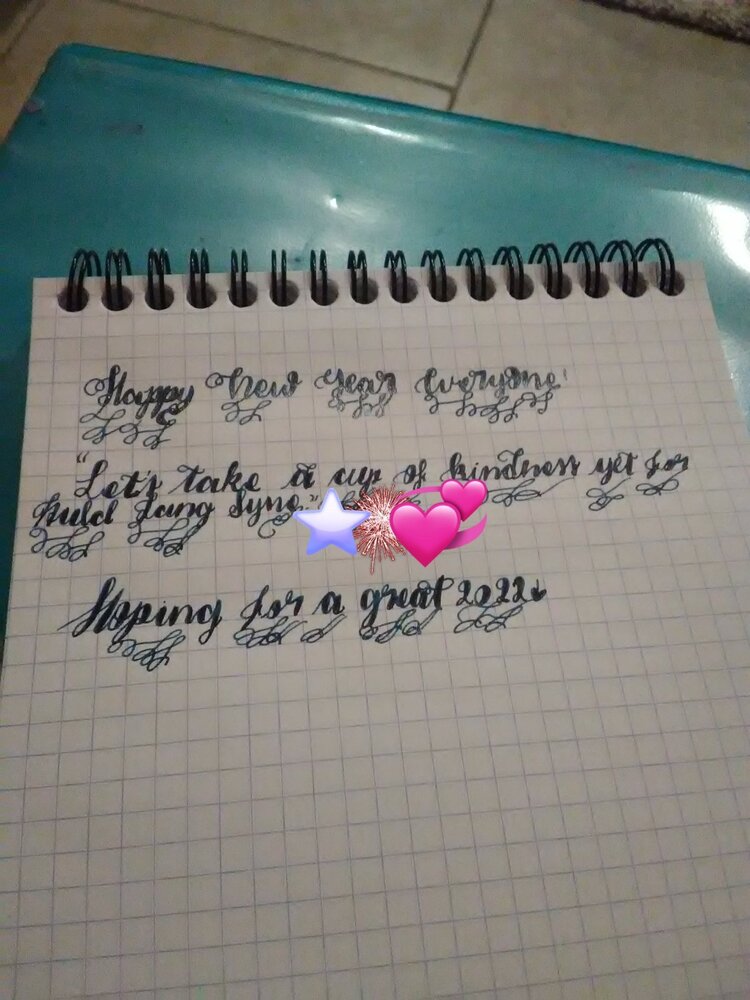 Happy New Year Everyone!
"Let's take a cup of kindness yet for
Auld Lang Syne"
Hoping for a great 2022